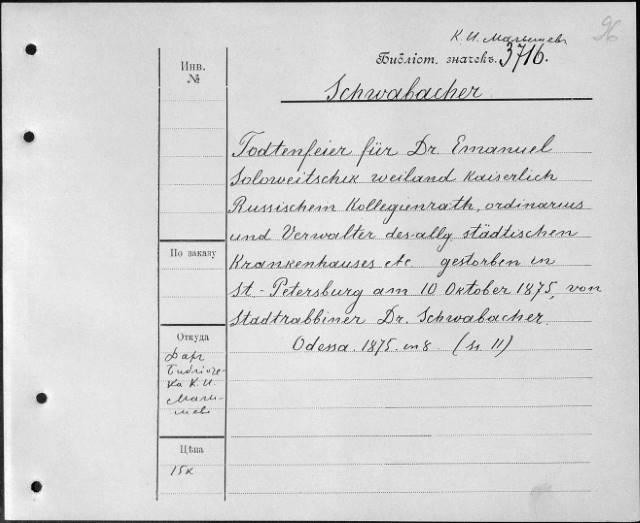 96
К. И. Малышев
Библіот. значекъ. 3716.
Инв.
№
Schwabacher
Todtenfeier für Dr. Emanuel
Soloweitschik weiland Kaiserlich
Russischem Kollegienrath, ordinarius
und Verwalter des allg. städtischen
Krankenhauses etc. gestorben in
St.-Petersburg am 10 Oktober 1875, von
Stadtrabbiner Dr. Schwabacher.
Odessa. 1875. in 8. (s. 11)
По заказу
Откуда
Даръ
Библіоте-
ка К. И.
Малы-
шева
Цѣна
15к